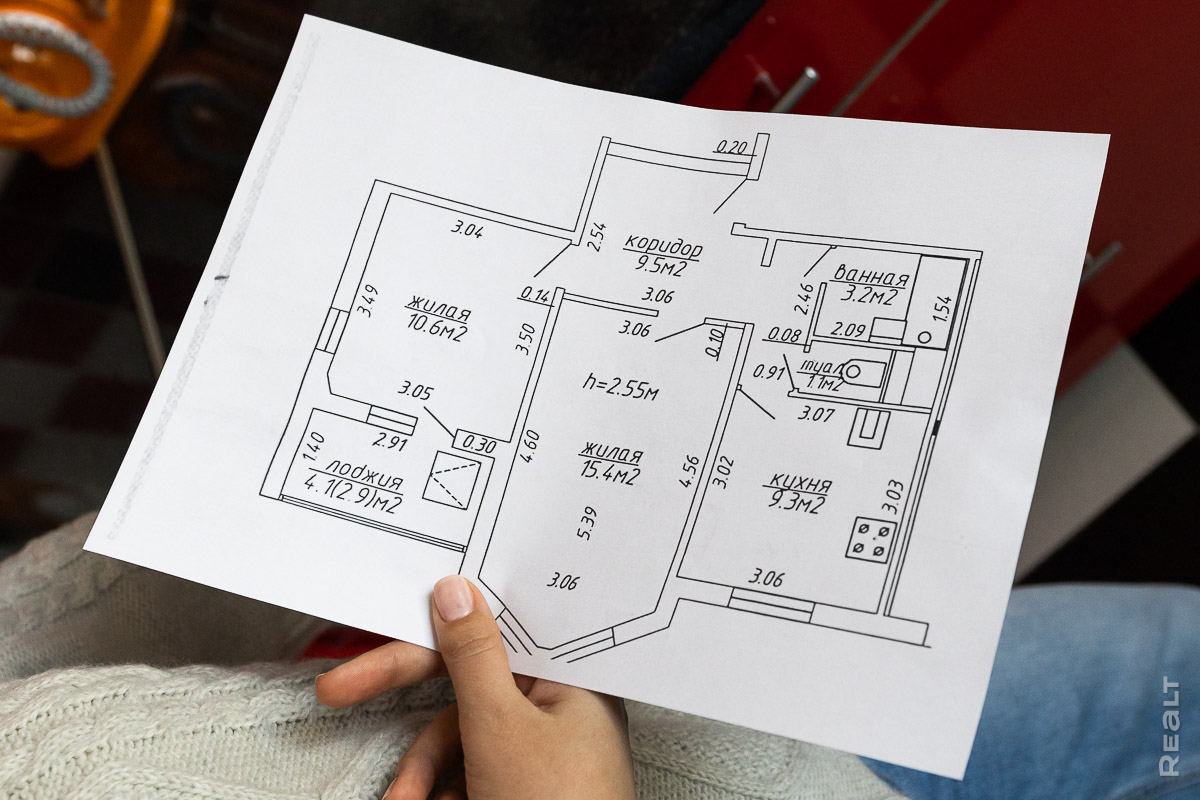 0.20
3.04
2.54
коридор
9.5м2
ванная
3.2м2
1.54
2.46
3.49
жилая
10.6м2
0.14
3.50
3.06
3.06
0.10
0.08
2.09
0.91
туал
1.1м2
3.07
h=2.55м
3.05
2.91
0.30
1.40
лоджия
4.1(2.9)м2
4.60
жилая
15.4м2
4.56
3.02
кухня
9.3м2
3.03
5.39
3.06
3.06
REALT